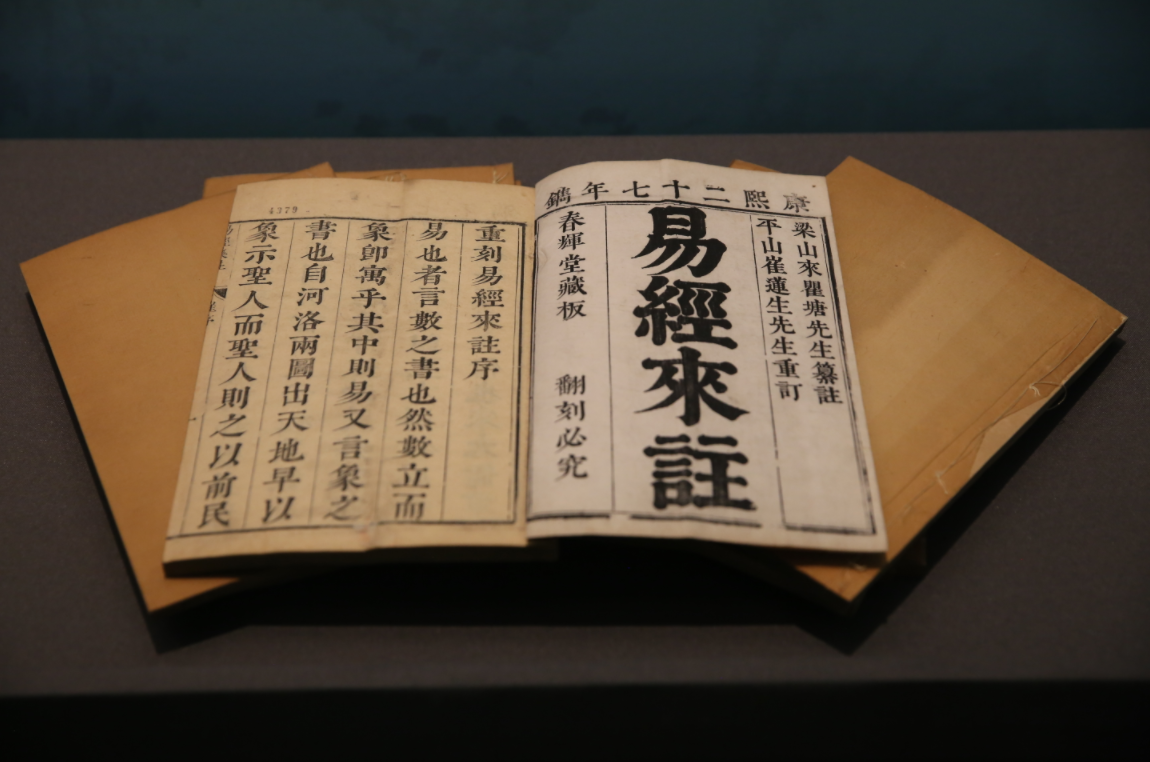 康熙二十七年鐫
梁山來瞿塘先生纂註
平山崔蓮生先生重訂
易經來註
春暉堂藏板 翻刻必究
重刻易經來註序
易也者言數之書也然數立而
象卽寓乎其中則易又言象之
書也自河洛兩圖出天地早以
象示聖人而聖人則之以前民
4379